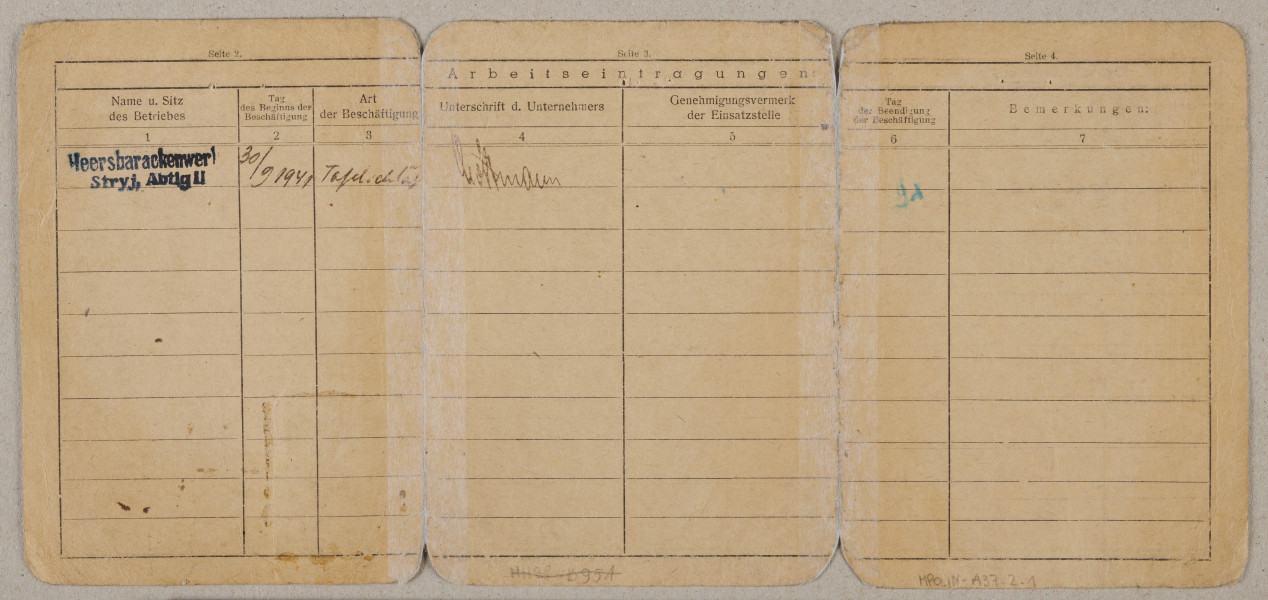 Seite 2.
Seite 3.
Seite 4.
Arbeitseintragungen:
Name u. Sitz
des Betriebes
Tag
des Beginns der
Beschäftigung
Art
der Beschäftigung
Unterschrift d. Unternehmers
Genehmigungsvermerk
der Einsatzstelle
Tag
der Beendigung
der Beschäftigung
Bemerkungen:
1
2
3
4
5
6
7
Heersbarackenwerk
Stryj, Abtlg II
30/9 1941
MPOLIN-A37-2-1